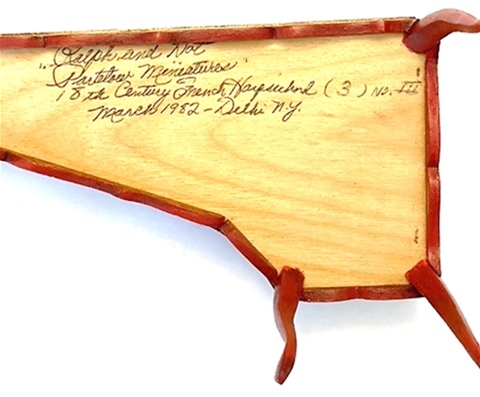 Ralph and Dot
"Partelow Mineatures"
18th Century French Harpsichord (3) No. III
March 1982 - Delhi N.Y.